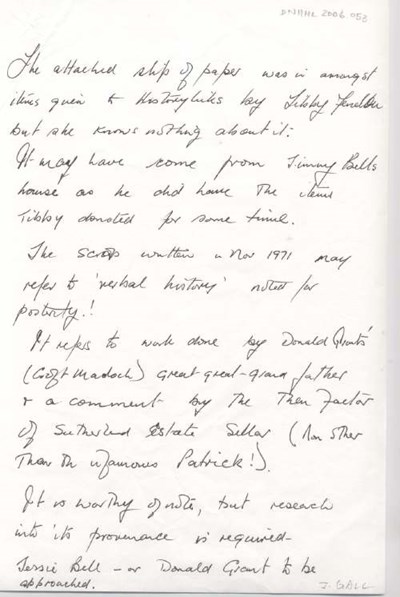 DNHHL 2006 053
The attached slip of paper was in amongst
items given to Historylinks by Tibby
but she knows nothing about it:
It may have come from Jimmy Bells
house as he did have the items
Tibby donated for some time.
The scrap written in Nov 1971 may
refer to 'verbal history' noted for
posterity.!
It refers to work done by Donald Grants'
(Croft Madoch) great-great-grand father
& a comment by the then factor
of Sutherland Estate Sellar (Non other
than the infamous Patrick!).
It is worthy of note, but research
into its provenance is required-
Jessie Bell - or Donald Grant to be
approached.
J. GALL